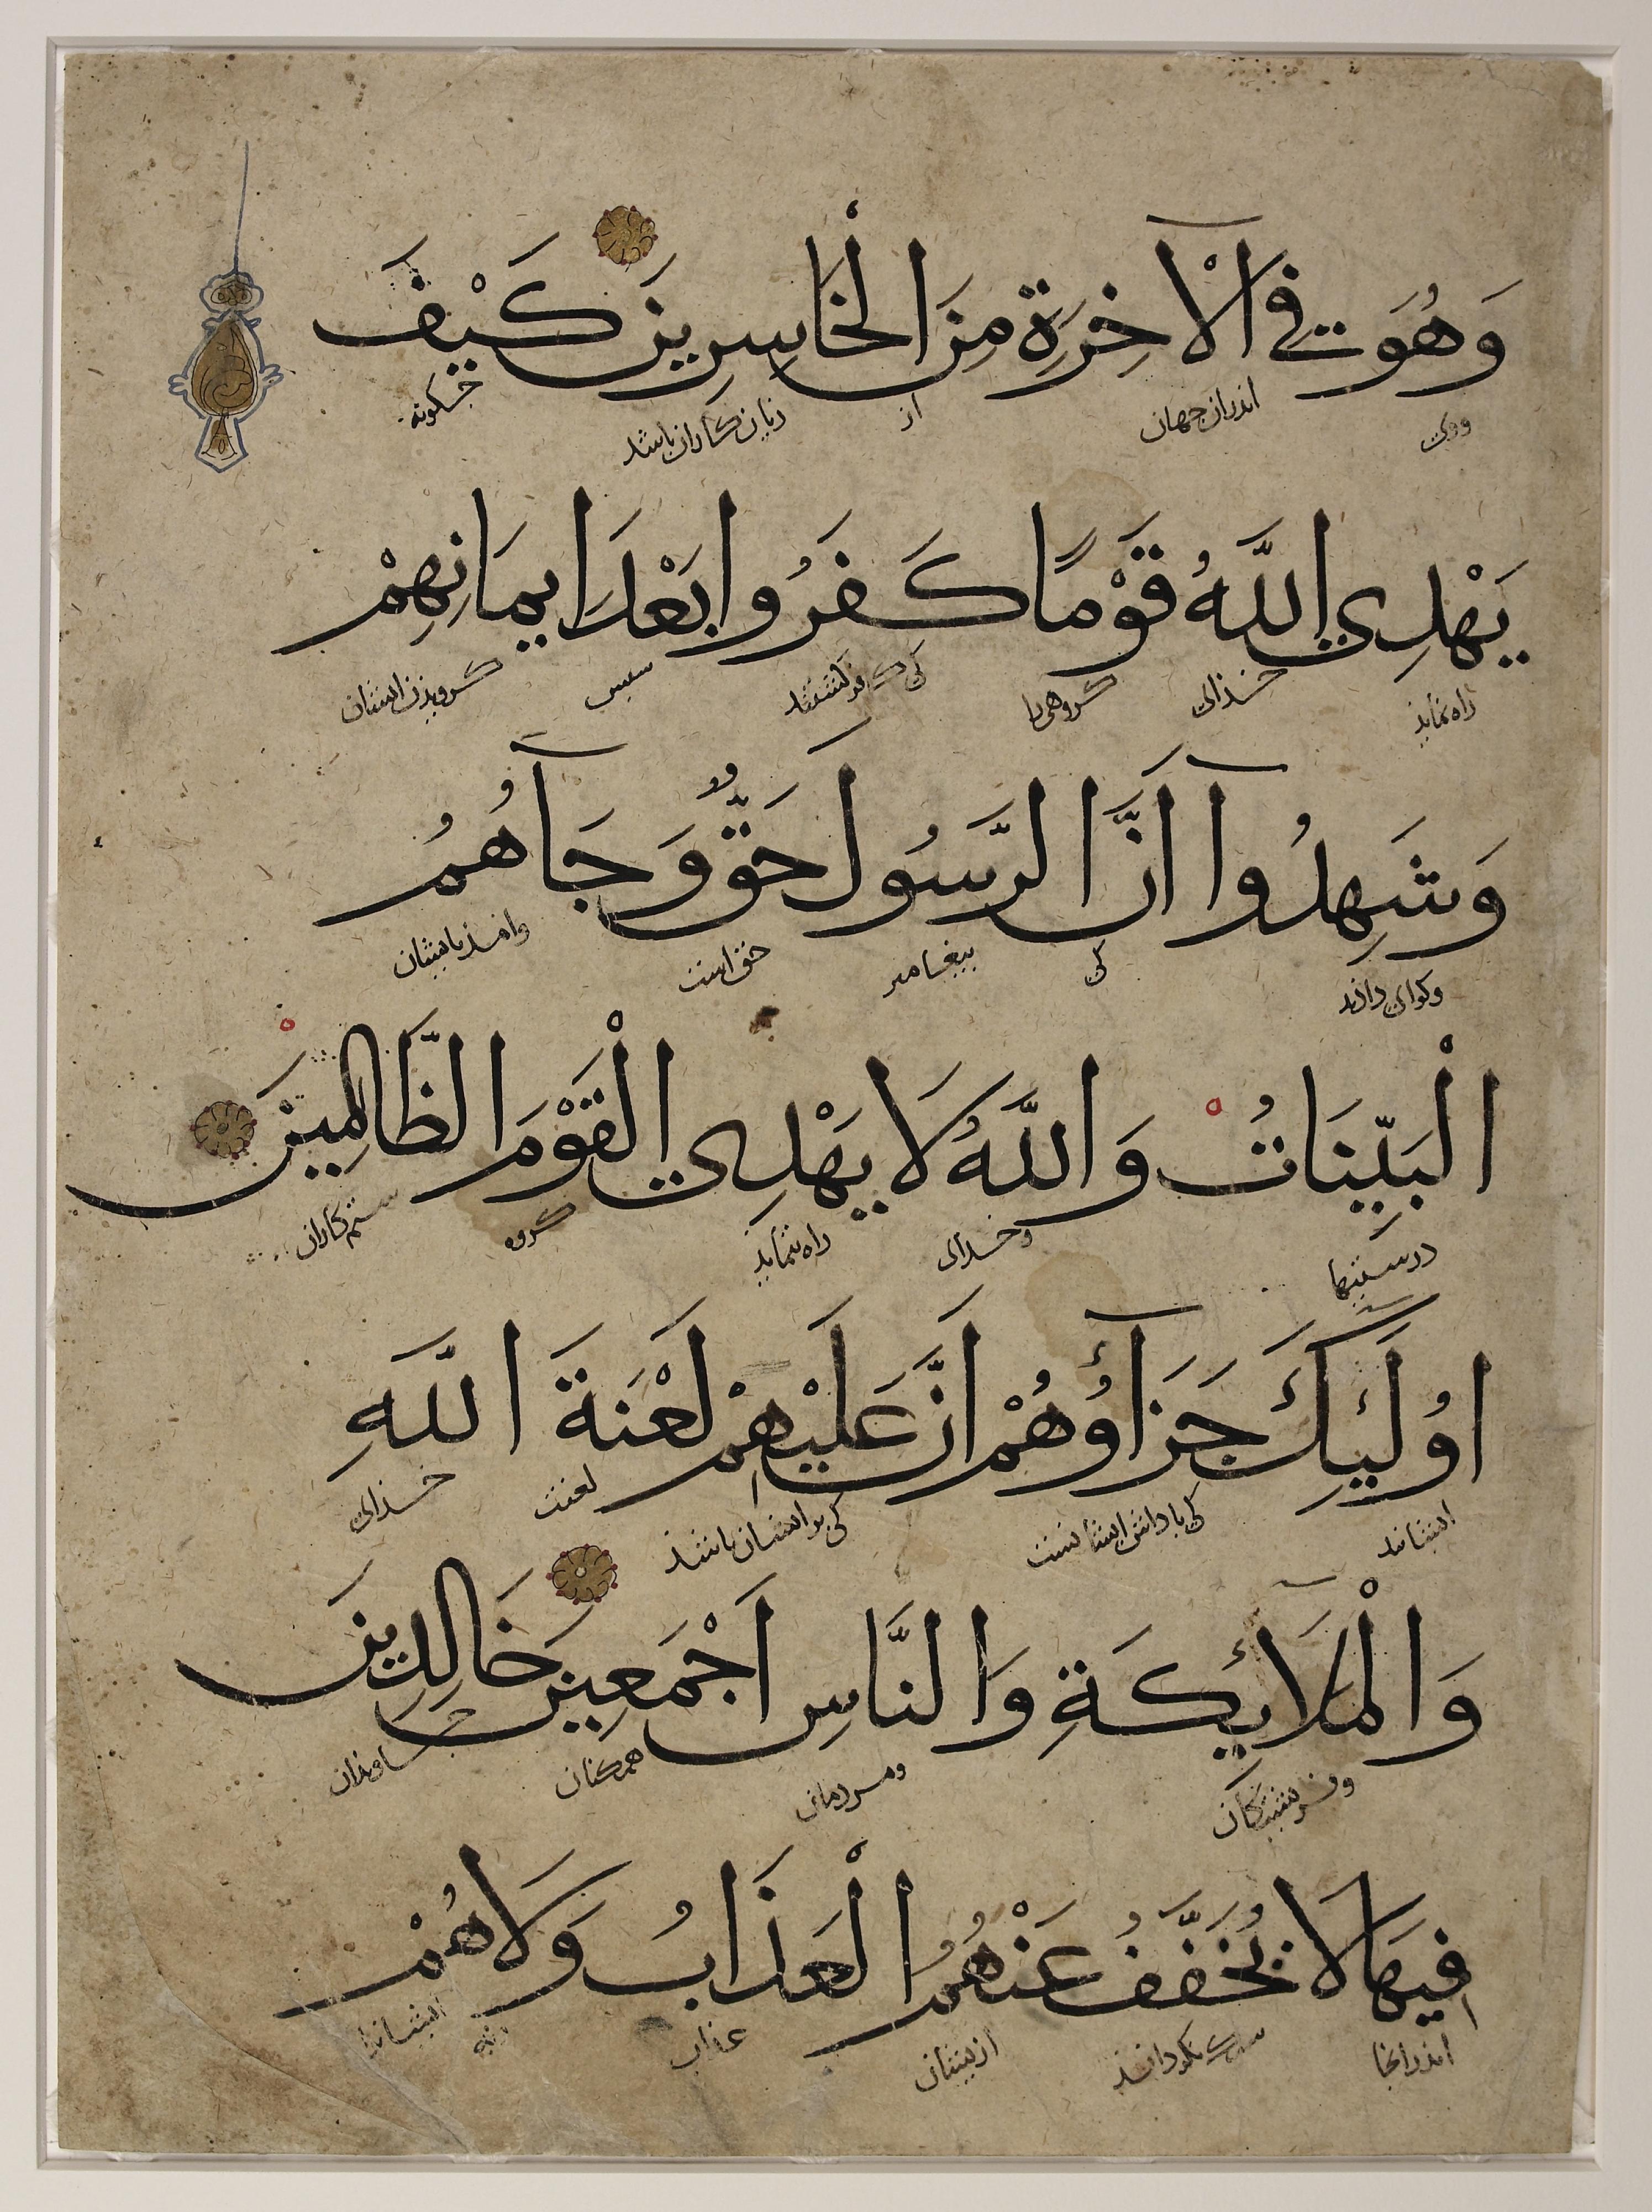 وَهُوَ فِي الْآخِرَةِ مِنَ الْخَاسِرِينَ كَيْفَ
ووی اندران جهان از زیان کاران باشد چکونه
يَهْدِي اللَّهُ قَوْمًا كَفَرُوا بَعْدَ اِيمَانِهِمْ
راه نماید خذای کروهی را کی کافر کشتند سپس کرویذن ایشان
وَشَهِدُوآ اَنَّ الرَّسُولَ حَقٌّ وَجَآهُمُ
وکوای دادند کی پیغامبر حق است وامذ بایشان
الْبَيِّنَاتُ وَاللَّهُ لَا يَهْدِي الْقَوْمَ الظَّالِمِينَ
درستیها وخذای راه ننماید کروه ستم کاران
اُولَئِكَ جَزَآؤُهُمْ اَنَّ عَلَيْهِمْ لَعْنَةَ اللَّهِ
ایشانند کی پاداش ایشانست کی بر ایشان باشذ لعنت خذای
وَالْمَلَآئِكَةِ وَالنَّاسِ اَجْمَعِينَ خَالِدِينَ
وفریشتکان ومردمان همکنان جاویذان
فِيهَا لَا يُخَفَّفُ عَنْهُمُ الْعَذَابُ وَلَا هُمْ
اندرانجا سبک نکردانند ازیشان عذاب ونه ایشانند